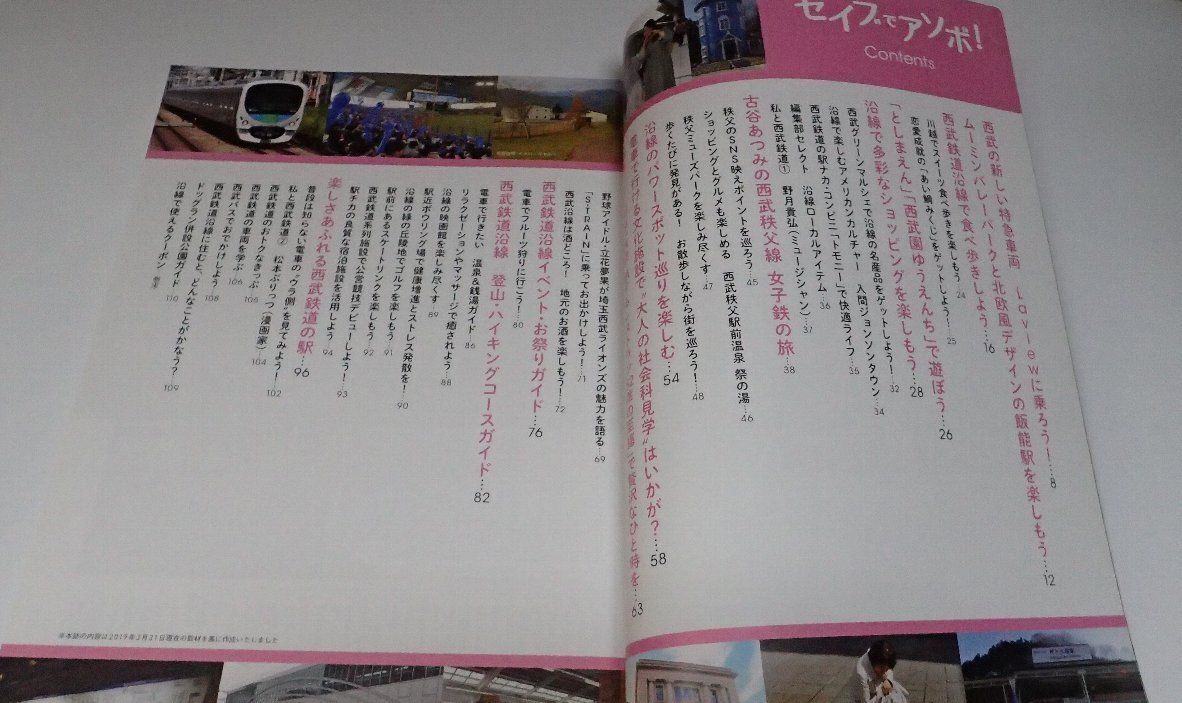 セイブでアソボ!
Contents
西武の新しい特急車両 Laviewに乗ろう!…8
ムーミンバレーパークと北欧風デザインの飯能駅を楽しもう…12
西武鉄道沿線で食べ歩きしよう…16
川越でスイーツ食べ歩きを楽しもう…24
恋愛成就の「あい鯛みくじ」をゲットしよう!…25
「としまえん」「西武園ゆうえんち」で遊ぼう…26
沿線で多彩なショッピングを楽しもう…28
西武グリーンマルシェで沿線の名産品をゲットしよう!…32
沿線で楽しむアメリカンカルチャー 入間ジョンソンタウン…34
西武鉄道の駅ナカ・コンビニ「トモニー」で快適ライフ…35
編集部セレクト 沿線ローカルアイテム…36
私と西武鉄道① 野月貴弘(ミュージシャン)…37
古谷あつみの西武秩父線 女子鉄の旅…38
秩父のSNS映えポイントを巡ろう…45
ショッピングとグルメも楽しめる 西武秩父駅前温泉 祭の湯…46
秩父ミューズパークを楽しみ尽くす…47
歩くたびに発見がある! お散歩しながら街を巡ろう!…48
沿線のパワースポット巡りを楽しむ…54
電車で行ける文化施設で“大人の社会科見学”はいかが?…58
で贅沢なひと時を…63
野球アイドル・立花夢果が埼玉西武ライオンズの魅力を語る…69
「S-TRAIN」に乗ってお出かけしよう!…71
西武沿線は酒どころ! 地元のお酒を楽しもう!…72
西武鉄道沿線イベント・お祭りガイド…76
電車でフルーツ狩りに行こう!…80
西武鉄道沿線 登山・ハイキングコースガイド…82
電車で行きたい 温泉&銭湯ガイド…86
リラクゼーションやマッサージで癒されよう…88
沿線の映画館を楽しみ尽くす…89
駅近ボウリング場で健康増進とストレス発散を!…90
沿線の緑の丘陵地でゴルフを楽しもう…91
駅前にあるスケートリンクを楽しもう…92
西武鉄道系列施設で公営競技デビューしよう!…93
駅チカの良質な宿泊施設を活用しよう…94
楽しさあふれる西武鉄道の駅…96
普段は知らない電車の“ウラ側”を見てみよう!…102
私と西武鉄道② 松本ぷりっつ(漫画家)…104
西武鉄道のおトクなきっぷ…105
西武鉄道の車両を学ぶ…106
西武バスでおでかけしよう…108
西武鉄道沿線に住むと、どんなことがかなう?…109
ドッグラン併設公園ガイド…110
沿線で使えるクーポン
※本誌の内容は2019年3月31日現在の取材を基に作成いたしました